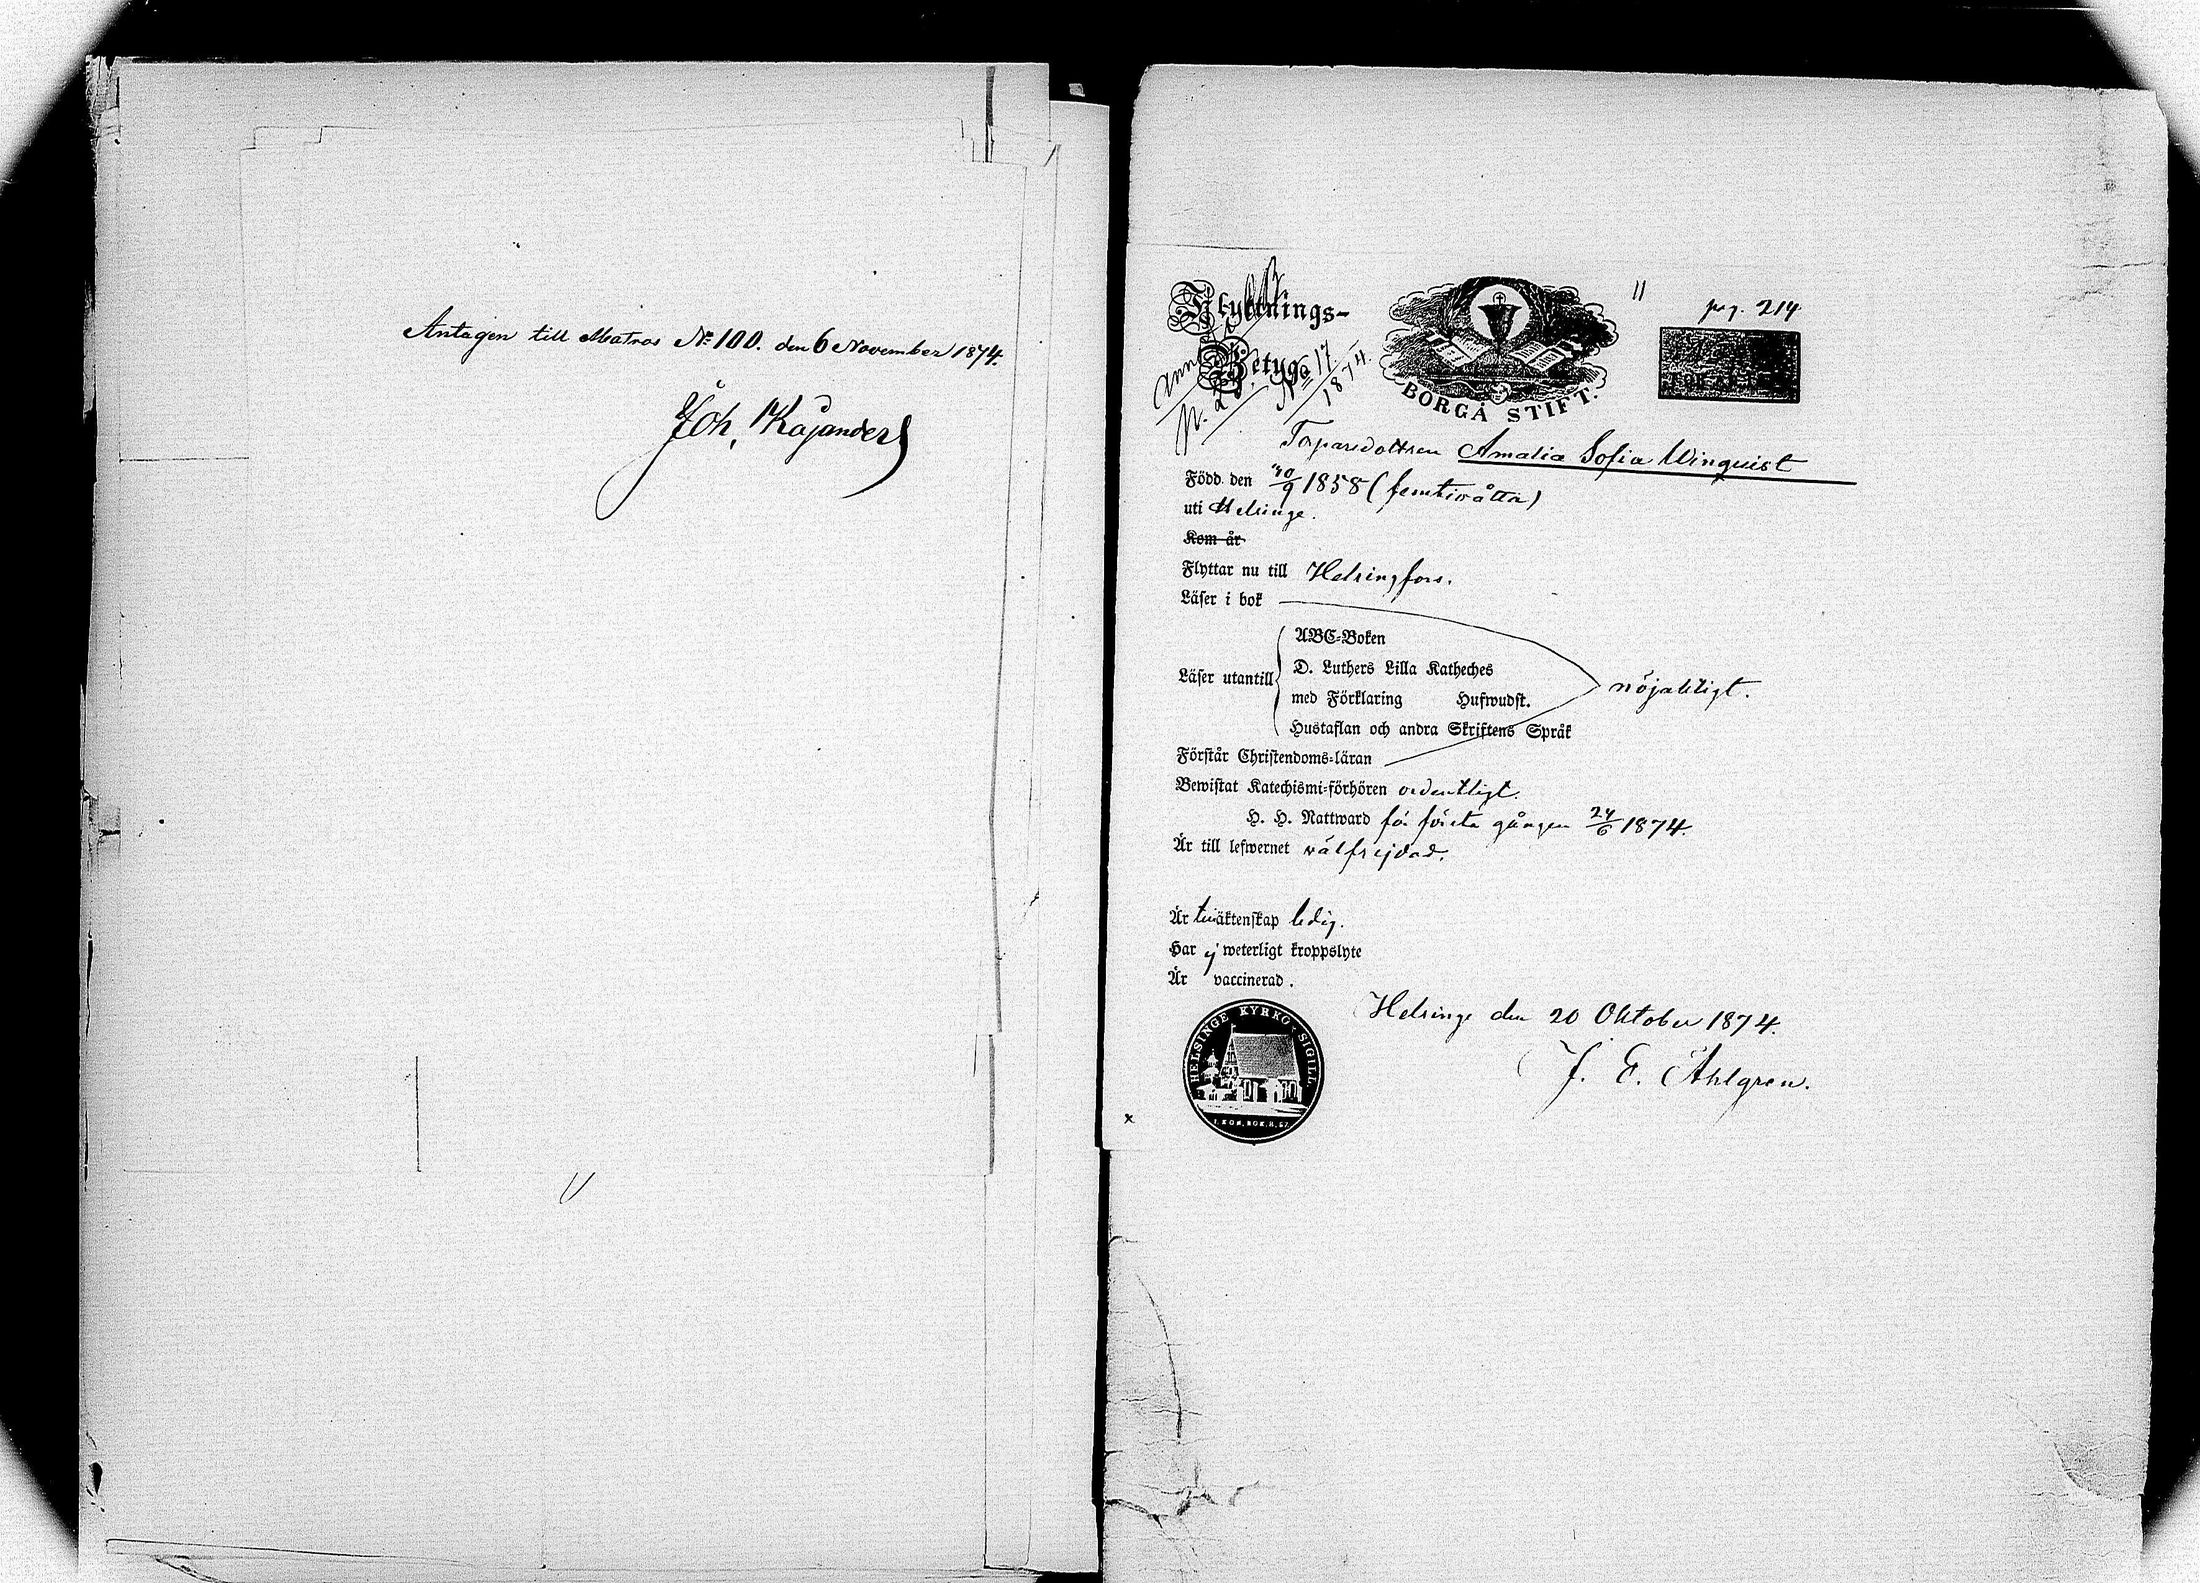 Antagen till Matros No 100. den 6 November 1874.
Joh. Kajander
Flyttnings-
Betyg
No 17
1874
BORGÅ STIFT.
11
pag. 214
Torparedottren Amalia Sofia Winquist
Född den 30/9 1858 (femtioåtta)
uti Helsinge.
Kom år
Flyttar nu till Helsingfors.
Läser i bok
ABC-Boken
D. Luthers Lilla Katheches
Läser utantill
med Förklaring Hufwudst.
nöjaktigt.
Hustaflan och andra Skriftens Språk
Förstår Christendoms-läran
Bewistat Katechismi-förhören ordentligt.
H. H. Nattward för första gången 24/6 1874.
Är till lefwernet välfrejdad.
Är till äktenskap ledig.
Har ej weterligt kroppslyte
Är vaccinerad.
Helsinge den 20 Oktober 1874.
J. E. Åhlgren.
HELSINGE KYRKO SIGILL.
1 KON. BOK. 8. 27.
x